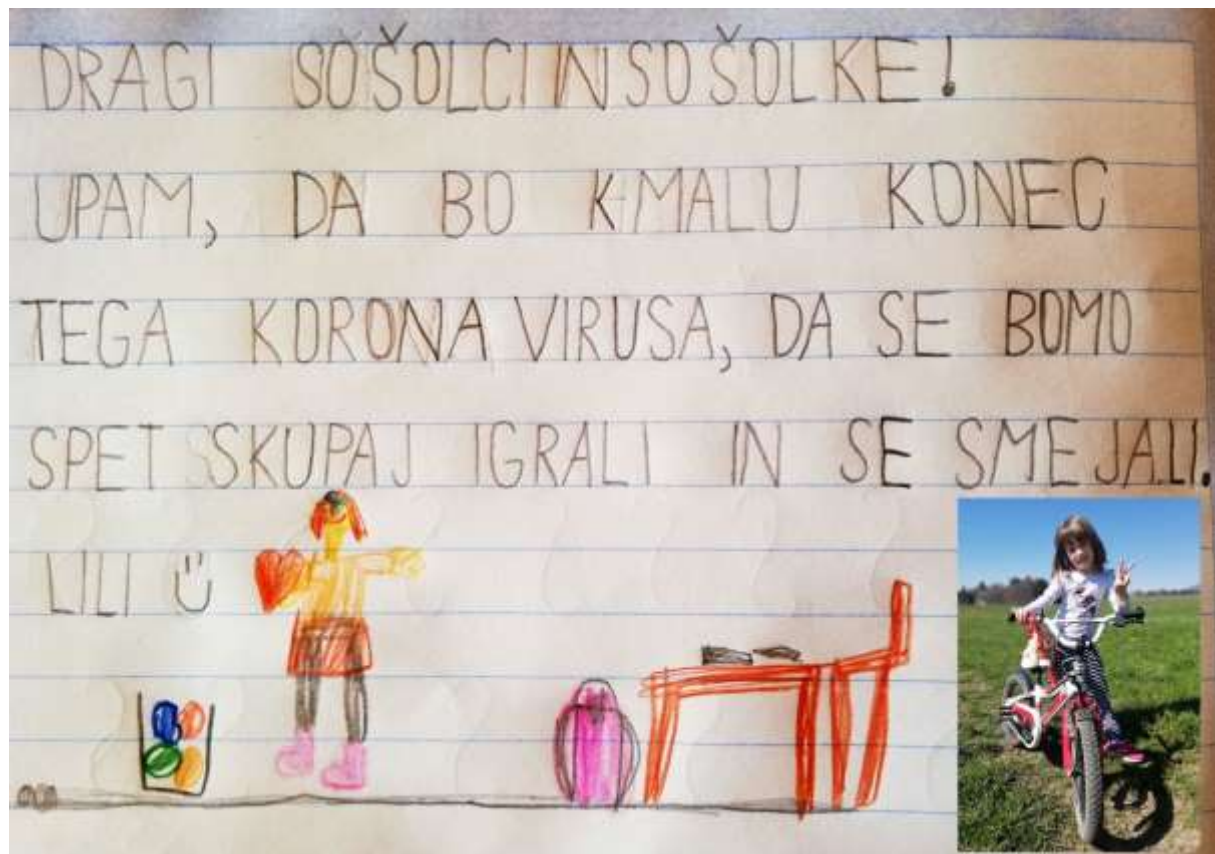 DRAGI SOŠOLCI IN SOŠOLKE!
UPAM, DA BO K-MALU KONEC
TEGA KORONA VIRUSA, DA SE BOMO
SPET SKUPAJ IGRALI IN SE SMEJALI.
LILI